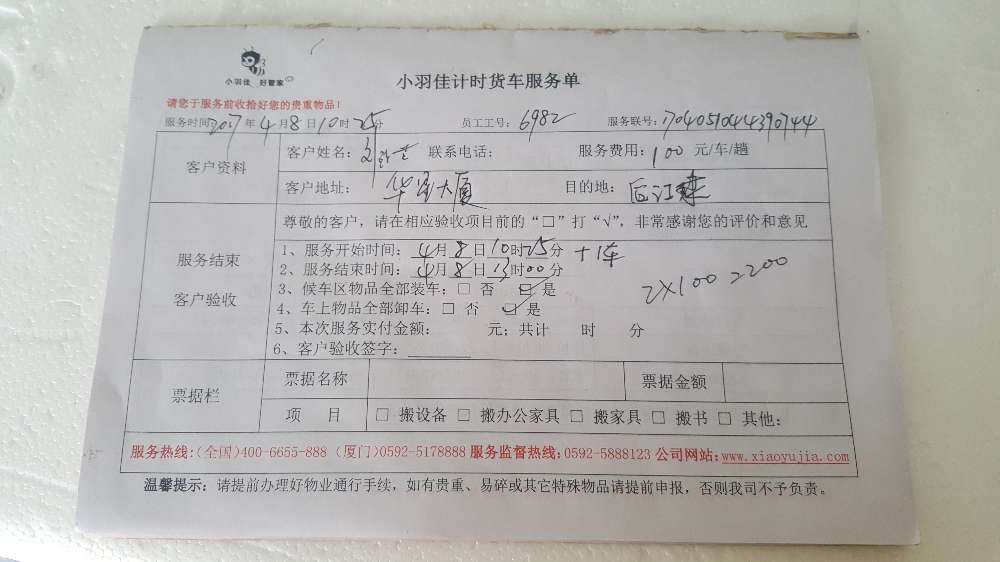 小羽佳 好管家
小羽佳计时货车服务单
请您于服务前收拾好您的贵重物品!
服务时间:2017年4月8日10时25分 员工工号:6982 服务联号:1704051044390744
客户资料
客户姓名: 联系电话: 服务费用:100 元/车/趟
客户地址:华星大厦 目的地:后江埭
服务结束
客户验收
尊敬的客户,请在相应验收项目前的“□”打“√”,非常感谢您的评价和意见
1、服务开始时间:4月8日10时25分 +1车
2、服务结束时间:4月8日13时00分
3、候车区物品全部装车:□ 否 ☑ 是
4、车上物品全部卸车:□ 否 ☑ 是
2X100=200
5、本次服务实付金额: 元;共计 时 分
6、客户验收签字:
票据栏
票据名称 票据金额
项 目 □ 搬设备 □ 搬办公家具 □ 搬家具 □ 搬书 □ 其他:
服务热线:(全国)400-6655-888 (厦门)0592-5178888 服务监督热线:0592-5888123 公司网站:www.xiaoyujia.com
温馨提示:请提前办理好物业通行手续,如有贵重、易碎或其它特殊物品请提前申报,否则我司不予负责。